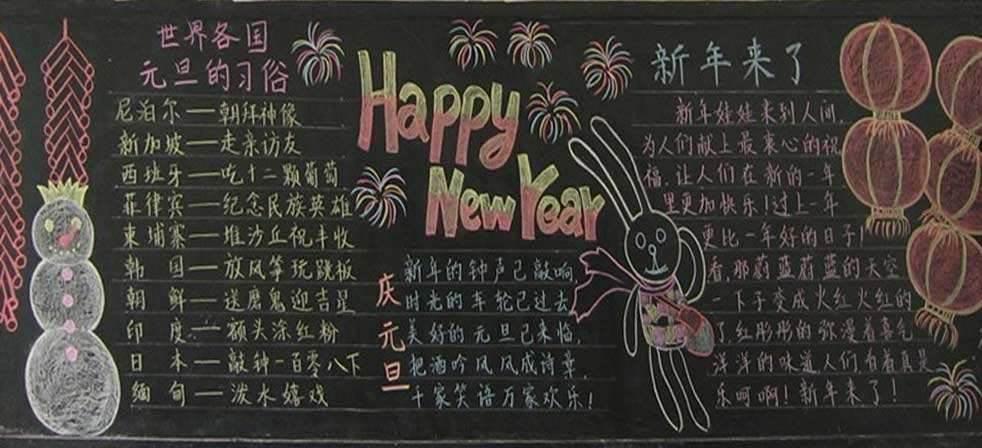 世界各国
元旦的习俗
尼泊尔—朝拜神像
新加坡—走亲访友
西班牙—吃十二颗葡萄
菲律宾—纪念民族英雄
柬埔寨—堆沙丘祝丰收
韩国—放风筝玩跳板
朝鲜—送魔鬼迎吉星
印度—额头涂红粉
日本—敲钟一百零八下
缅甸—泼水嬉戏
Happy
New Year
庆元旦
新年的钟声已敲响
时光的车轮已过去
美好的元旦已来临,
把酒吟风风成诗章,
十家笑语万家欢乐!
新年来了
新年娃娃来到人间,
为人们献上最衷心的祝
福,让人们在新的一年
里更加快乐!过上一年
更比一年好的日子!
看,那蔚蓝蔚蓝的天空
一下子变成火红火红的
了,红彤彤的弥漫着喜气
洋洋的味道,人们看着真是
乐呵啊!新年来了!